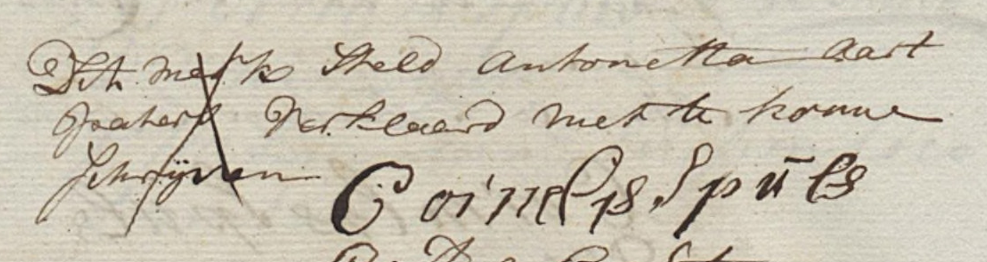 Dit merk steld Antonetta Aart
Verklaard niet te konne
schrijven
Cornelis Spuls